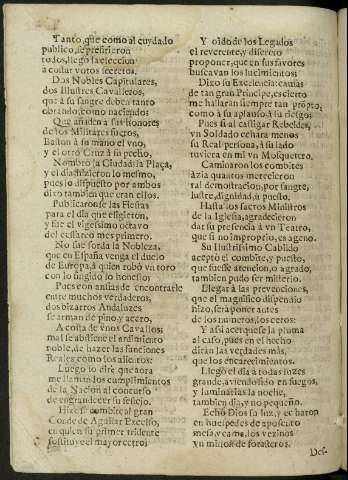 Tanto, que como al cuydado
publico, se prefirieron
todos, llegò la eleccion
a costar votos secretos.
Dos Nobles Capitulares,
dos Illustres Cavalleros,
que à su sangre deben tanto
obrando, como naciendo:
Que añaden à sus honores
de los Militares fueros,
Baston à su mano el vno,
y el otro Cruz à su pecho.
Nombrò la Ciudad la Plaça,
y el dia hizieron lo mesmo,
pues lo dispuesto por ambos
dicho tambien que eran ellos.
Publicaronse las Fiestas
para el dia que eligieron,
y fue el vigesimo octavo
del mes primero.
No fue sorda la Nobleza,
que en España venga el duelo
de Europa, à quien robò vn toro
con lo fingido lo honesto:
Pues con ansias de encontrarle
entre muchos verdaderos,
dos bizarros Andaluzes
se arman de pino, y azero,
A costa de vnos Cavallos;
mal se abstiene el ardimiento
noble, de hazer las funciones
Reales, como los alientos:
Luego lo dirè que aora
me llaman los cumplimientos
de la Nacion al concurso
de engrandecer su festejo.
Hizose combite al gran
Conde de Aguilar Excelso,
en quien su primer tridente
sostituye el mayor cetro:
Y oìdo de los Legados
el reverente, y discreto
proponer, que en sus favores
buscavan los lucimientos;
Dixo su Excelencia: causas
de tan gran Principe, es cierto
me hallaràn siempre tan prõpto,
como à su aplauso, à su riesgo:
Pues si al castigar Rebeldes,
vn Soldado echarà menos
su Real persona, à su lado
tuviera en mi vn Mosquetero.
Caminaron los combites
àzia quantos merecieron
tal demostracion, por sangre,
lustre, dignidad, ù puesto.
Hasta los sacros Ministros
de la Iglesia, agradecieron
dar su presencia à vn Teatro,
que si no improprio, es ageno.
Su Ilustrissimo Cabildo
aceptò el combite, y puesto,
que fuesse atencion, o agrado,
tambien pudo ser misterio.
Llegar à las prevenciones,
que el magnifico dispendio
hizo, serà poner antes
de los numeros, los ceros:
Y assi acerquese la pluma
al caso, pues en el hecho
diràn las verdades màs,
que los encarecimientos.
Llegò el dia à todas luzes
grande, aviendosido en fuegos,
y luminarias la noche,
tambien dia, y no pequeño.
Echò Dios su luz, y echaron
en huespedes de aposento
mesa, y cama, los vezinos
vn millon de forasteros.
Des-